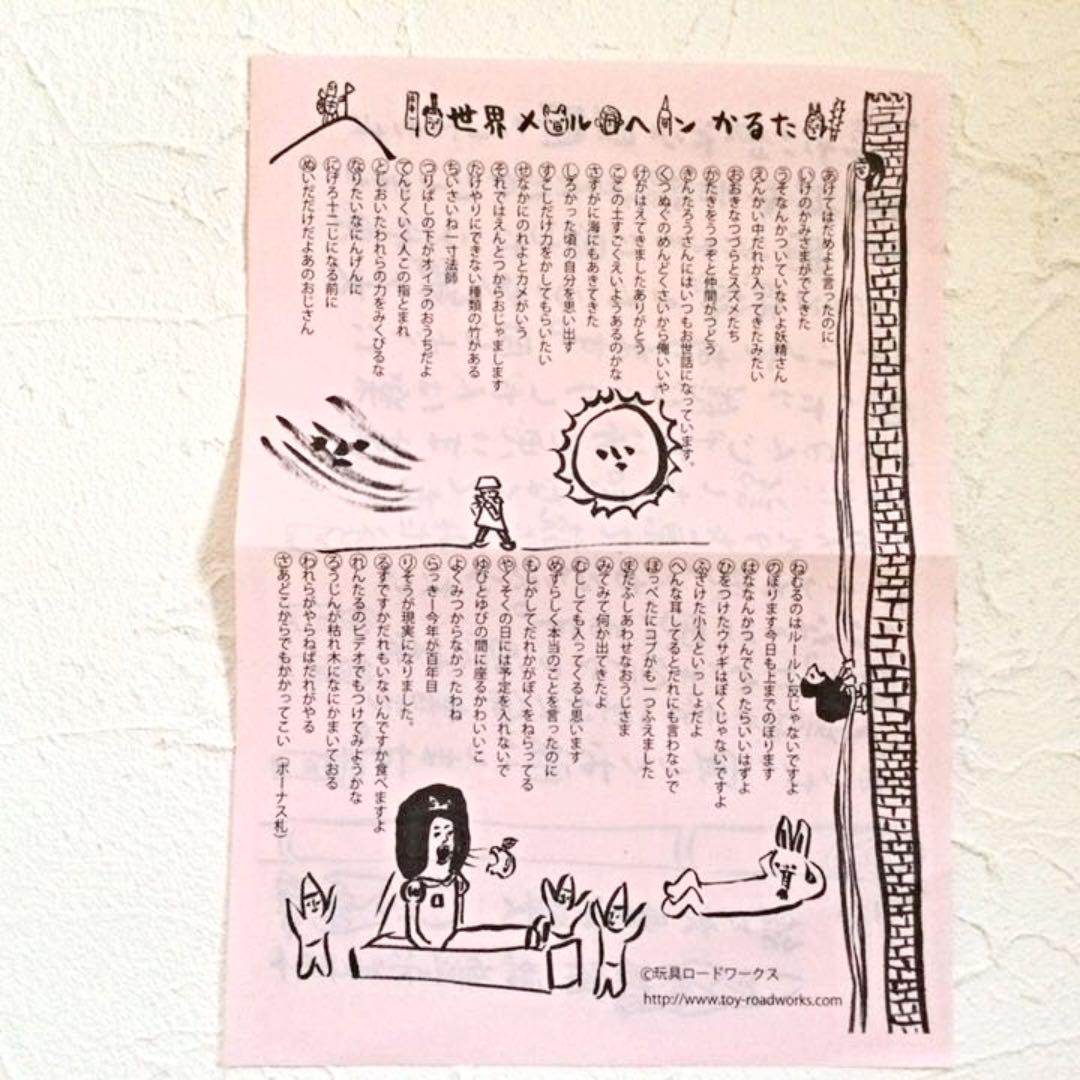 世界メルヘン かるた
あけてはだめよと言ったのに
いけのかみさまがでてきた
うそなんかついていないよ妖精さん
えんかい中だれか入ってきたみたい
おおきなつづらとスズメたち
かたきをうつぞと仲間がつどう
きんたろうさんにはいつもお世話になっています。
くつぬぐのめんどくさいから俺いいや
けがはえてきましたありがとう
ここの土すごくえいようあるのかな
さすがに海にもあきてきた
しろかった頃の自分を思い出す
すこしだけ力をかしてもらいたい
せなかにのれよとカメがいう
それではえんとつからおじゃまします
たけやりにできない種類の竹がある
ちいさいね一寸法師
つりばしの下がオイラのおうちだよ
てんじくいく人この指とまれ
としおいたわれらの力をみくびるな
なりたいなにんげんに
にげろ十二じになる前に
ぬいだだけだよあのおじさん
ねむるのはルールい反じゃないですよ
のぼります今日も上までのぼります
はななんかつんでいったらいいはずよ
ひをつけたウサギはぼくじゃないですよ
ふざけた小人といっしょだよ
へんな耳してるとだれにも言わないで
ほっぺたにコブがも一つふえました
まだふしあわせなおうじさま
みてみて何か出てきたよ
むしても入ってくると思います
めずらしく本当のことを言ったのに
もしかしてだれかがぼくをねらってる
やくそくの日には予定を入れないで
ゆびとゆびの間に座るかわいいこ
よくみつからなかったわね
らっきー今年が百年目
りそうが現実になりました。
るすですかだれもいないんですか食べますよ
れんたるのビデオでもつけてみようかな
ろうじんが枯れ木になにかまいておる
われらがやらねばだれがやる
さあどこからでもかかってこい(ボーナス札)
©玩具ロードワークス
http://www.toy-roadworks.com